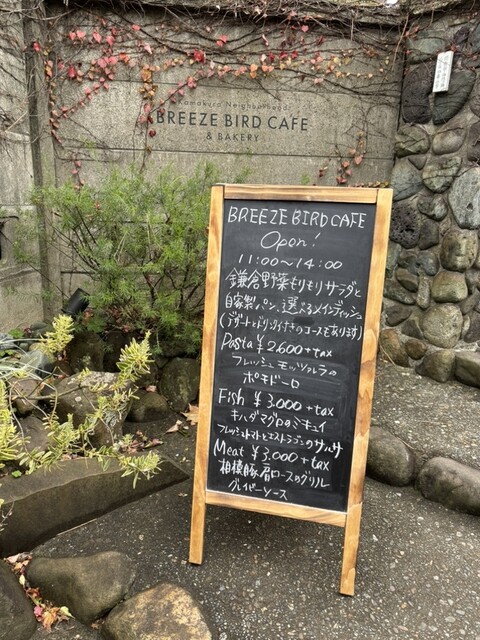 Kamakura Neighborhood
BREEZE BIRD CAFE
& BAKERY
BREEZE BIRD CAFE
Open!
11:00〜14:00
鎌倉野菜もりもりサラダと
自家製パン、選べるメインディッシュ
(デザートとドリンク付きのコースもあります)
Pasta ¥2,600+tax
フレッシュモッツァレラの
ポモドーロ
Fish ¥3,000+tax
キハダマグロのミキュイ
フレッシュトマトとエストラゴンのサルサ
Meat ¥3,000+tax
相模豚肩ロースのグリル
グレイビーソース